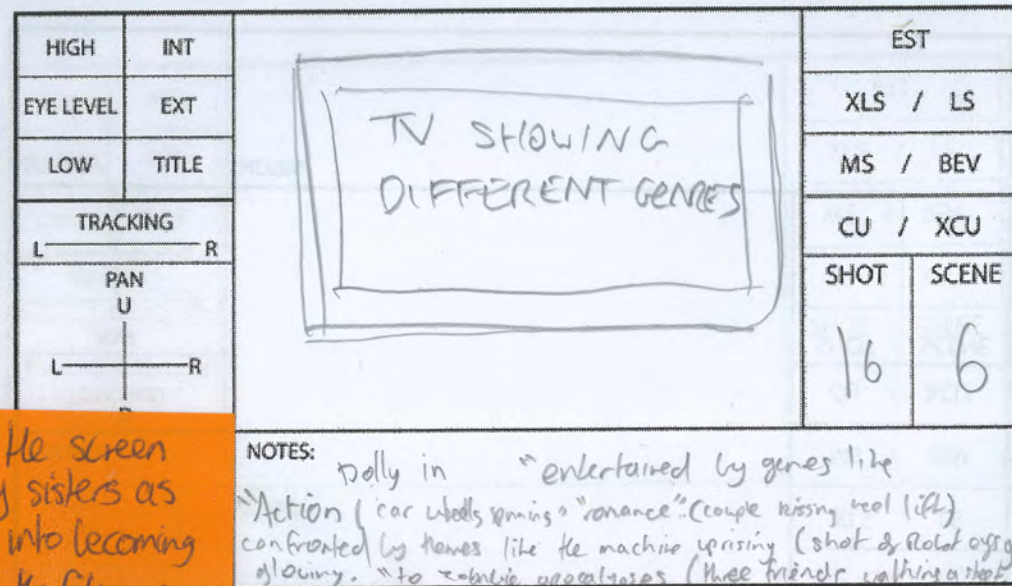 HIGH INT
EYE LEVEL EXT
LOW TITLE
TRACKING
L R
PAN
U
L R
TV SHOWING
DIFFERENT GENRES
EST
XLS / LS
MS / BEV
CU / XCU
SHOT SCENE
16 6
the screen
sisters as
into becoming
NOTES:
Dolly in "entertained by genres like
"Action (car wheels spinning" "romance" (couple kissing reel life)
confronted by themes like the machine uprising (shot of Robot eyes
glowing. "to zombie apocalypses (three friends walking